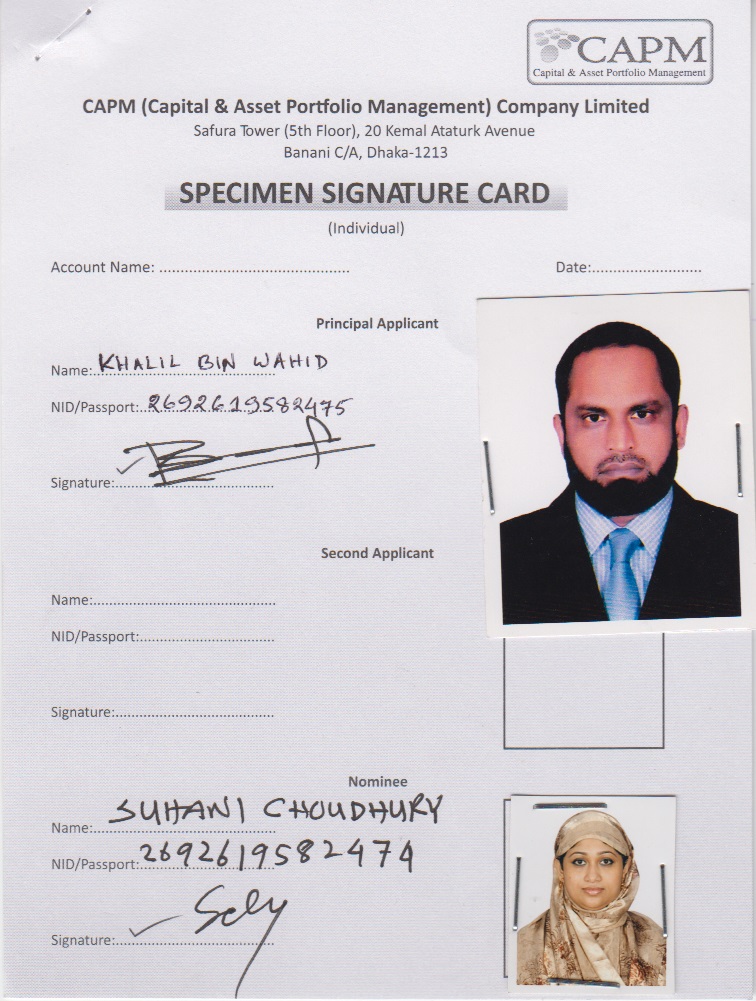 CAPM
Capital & Asset Portfolio Management
CAPM (Capital & Asset Portfolio Management) Company Limited
Safura Tower (5th Floor), 20 Kemal Ataturk Avenue
Banani C/A, Dhaka-1213
SPECIMEN SIGNATURE CARD
(Individual)
Account Name: ............................................. Date:..........................
Principal Applicant
Name: KHALIL BIN WAHID
NID/Passport: 2692619582475
Signature:
Second Applicant
Name:............................................
NID/Passport:................................
Signature:......................................
Nominee
Name: SUHANI CHOUDHURY
NID/Passport: 2692619582474
Signature: